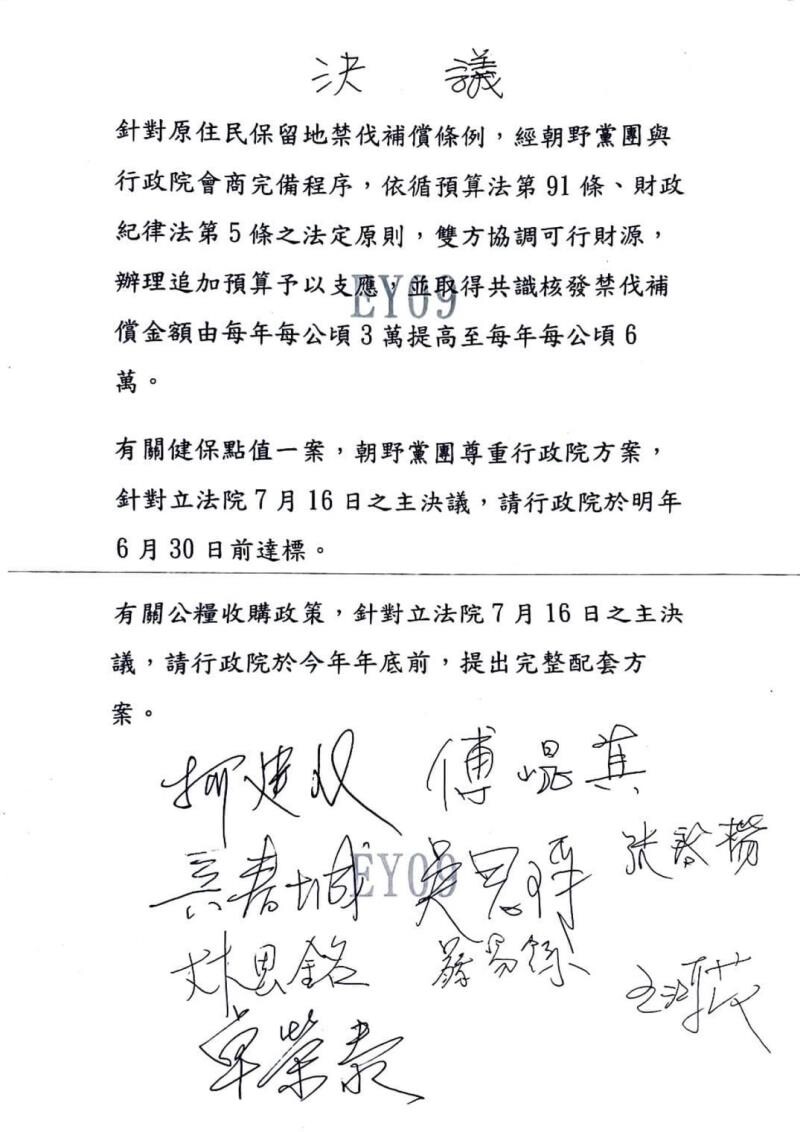 決 議
針對原住民保留地禁伐補償條例，經朝野黨團與
行政院會商完備程序，依循預算法第 91 條、財政
紀律法第 5 條之法定原則，雙方協調可行財源，
辦理追加預算予以支應，並取得共識核發禁伐補
償金額由每年每公頃 3 萬提高至每年每公頃 6
萬。
EY09
有關健保點值一案，朝野黨團尊重行政院方案，
針對立法院 7 月 16 日之主決議，請行政院於明年
6 月 30 日前達標。
有關公糧收購政策，針對立法院 7 月 16 日之主決
議，請行政院於今年年底前，提出完整配套方
案。
柯建 傅崐萁
張啓楷
吳思瑤
EY09
林思銘
卓榮泰